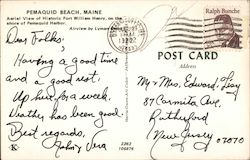 PEMAQUID BEACH, MAINE
Aerial View of Historic Fort William Henry, on the
shore of Pemaquid Harbor.
Airview by Lyman
Dear Folks:
Having a good time
and a good rest.
Up here for a week.
Weather has been good.
Best regards,
John & Vera
K
2262
106874
Ralph Bunche
POST CARD
Address
Mr & Mrs. Edward Leay
87 Carmita Ave.
Rutherford
New Jersey
07070